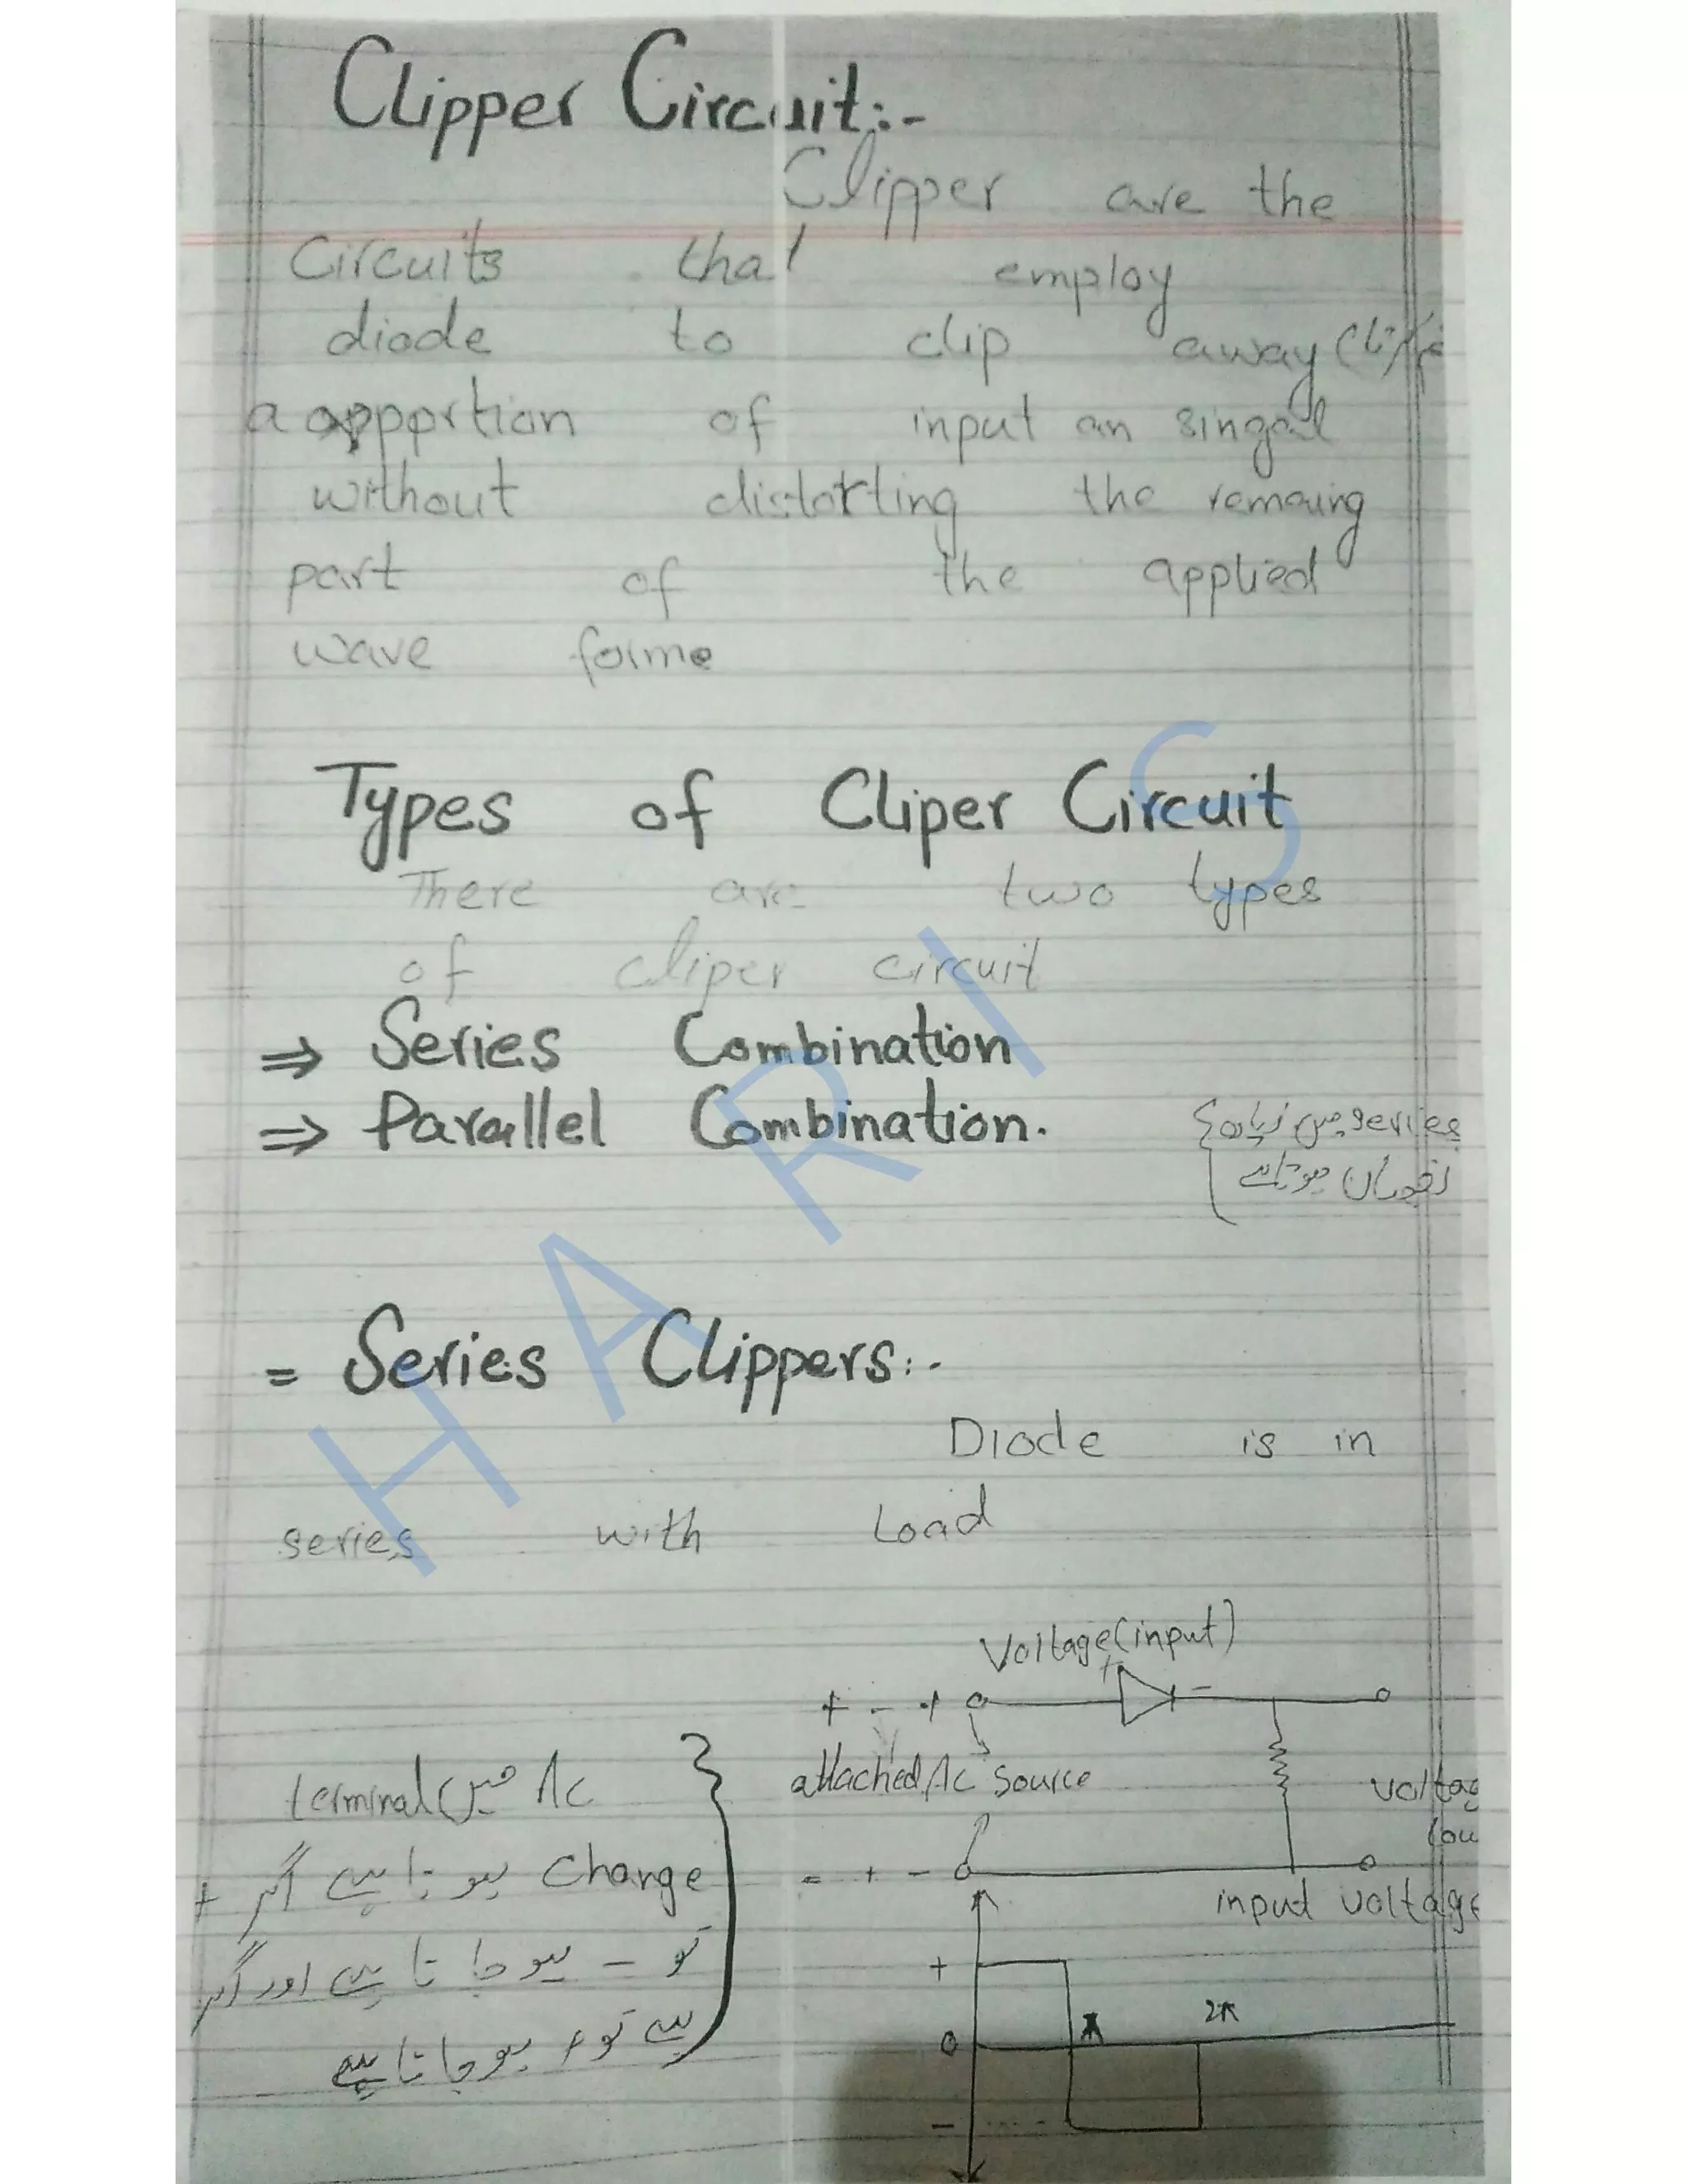 Clipper Circuit:-
Clipper are the
Circuits that employ
diode to clip away
a apportion of input an singal
without distorting the remaing
part of the applied
wave forme
Types of Cliper Circuit
There are two types
of cliper circuit
⇒ Series Combination
⇒ Parallel Combination.
series میں زیادہ
نقصان ہوتا ہے
= Series Clippers:-
Diode is in
series with Load
Voltage (input)
+ -
+ - +
attached Ac source
voltag
(ou
- + -
Ac میں terminal
Change ہوتا ہے اگر +
تو - ہوجاتا ہے اور اگر
ہے تو + ہوجاتا ہے
input voltage
+
0
π
2π
-
HARIS